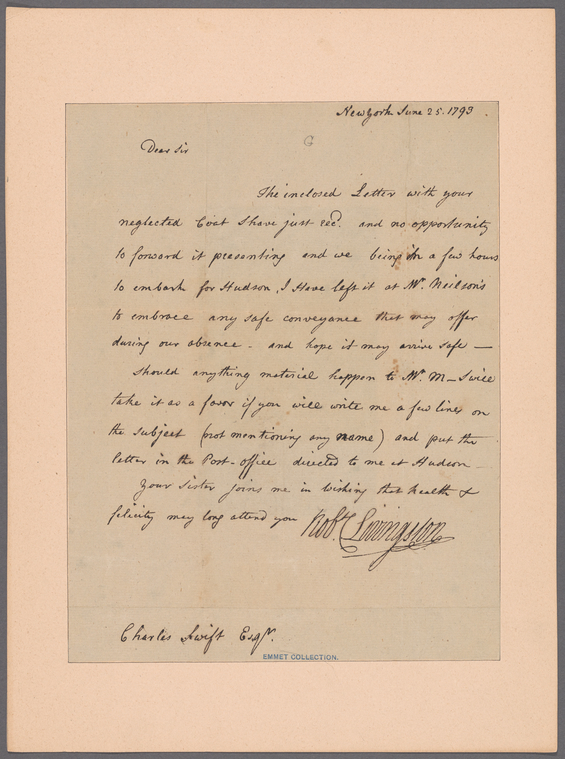 New York June 25. 1793
Dear Sir
The inclosed Letter with your
neglected Coat I have just recd. and no opportunity
to forward it presenting and we being in a few hours
to embark for Hudson, I Have left it at Mr. Neilson's
to embrace any safe conveyance that may offer
during our absence - and hope it may arrive safe —
should anything material happen to Mr. M— I will
take it as a favor if you will write me a few lines on
the subject (not mentioning any name) and put the
letter in the Post-office directed to me at Hudson
Your Sister joins me in wishing that health &
felicity may long attend you Robt. Livingston
Charles Swift Esqr.
EMMET COLLECTION.